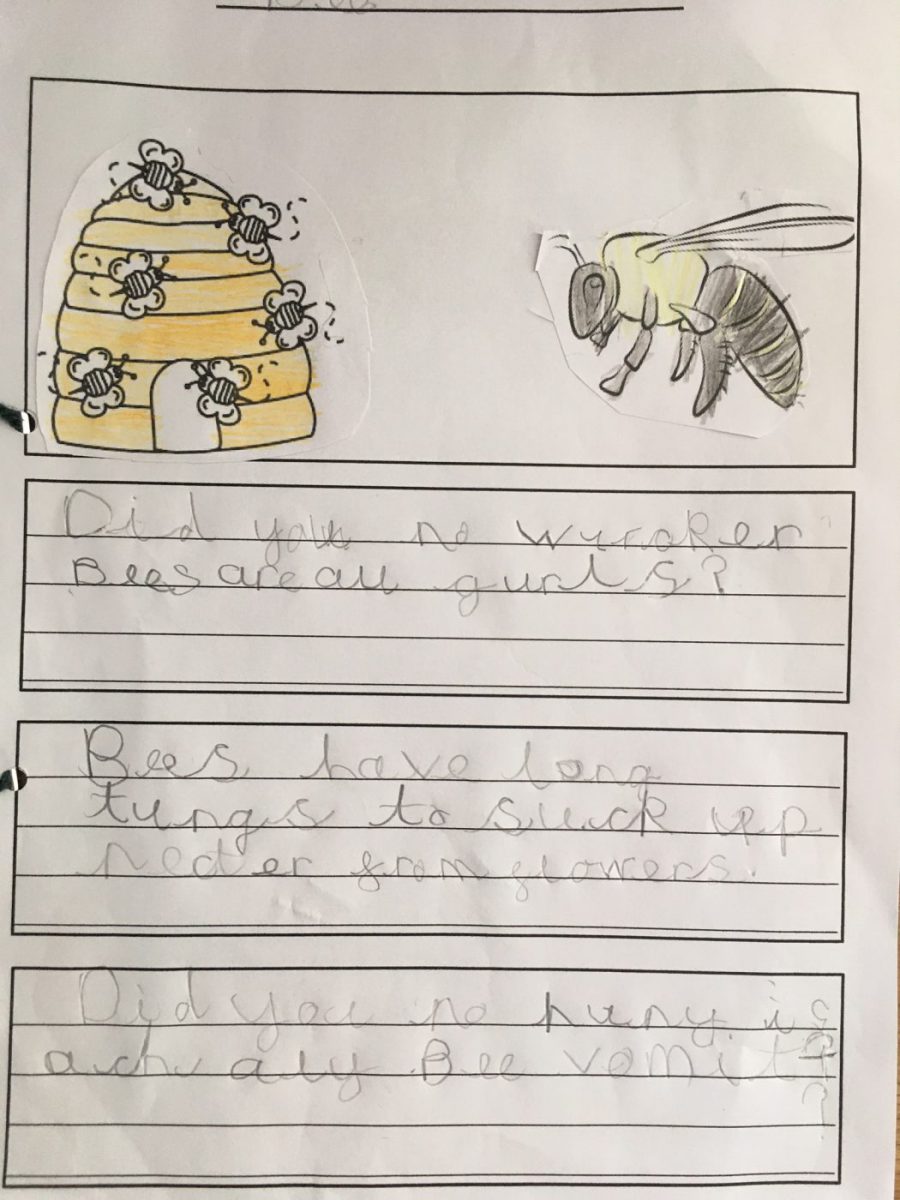 Did you no wuroker
Bees are all gurls?
Bees have long
tungs to suck up
necter from flowers.
Did you no huny is
achualy Bee vomit?